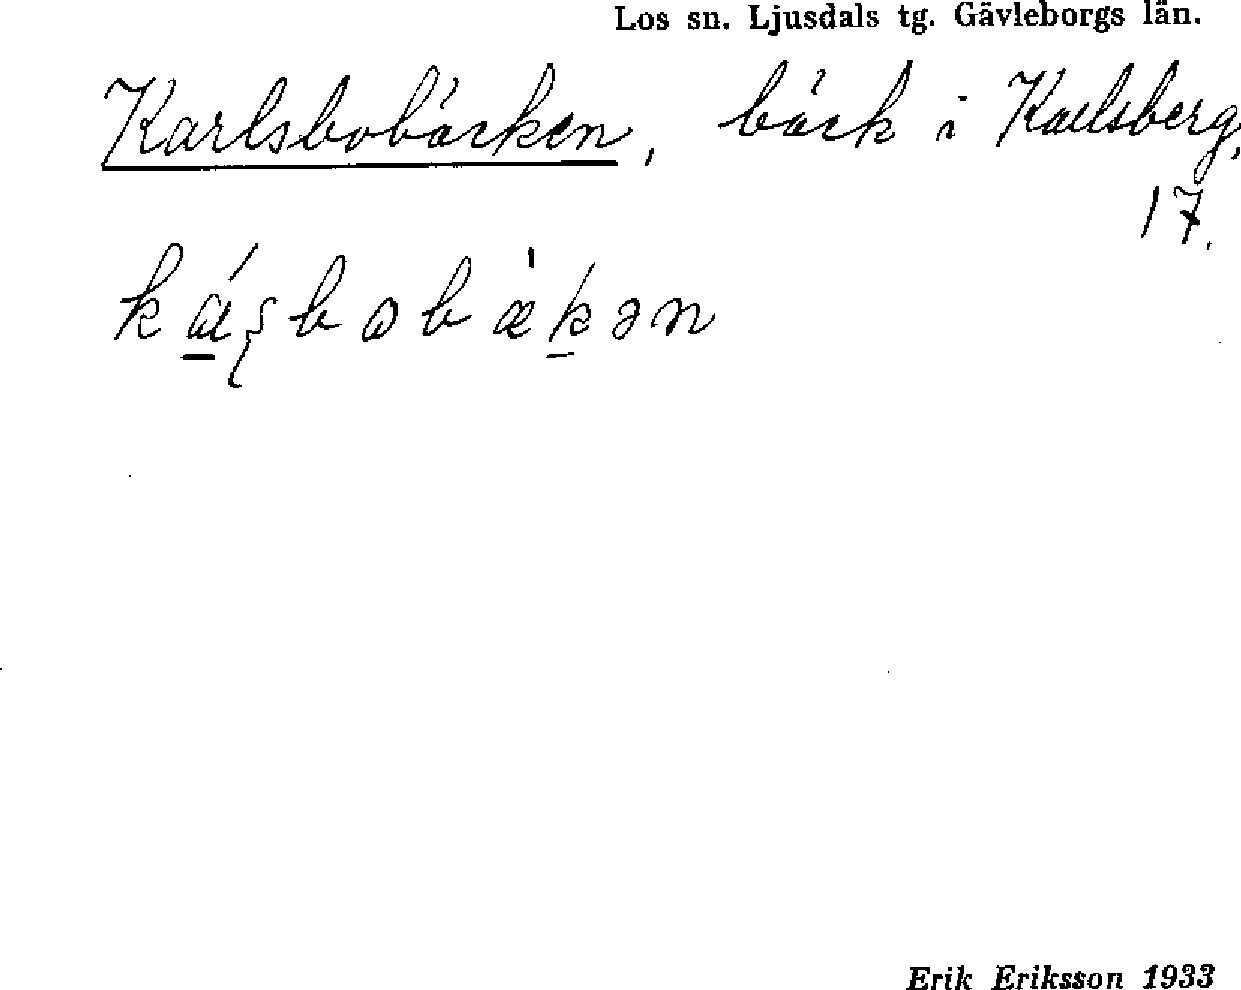 Los sn. Ljusdals tg. Gävleborgs län.
Karlsbobäcken, bäck i Karlsberg,
17.
Erik Eriksson 1933